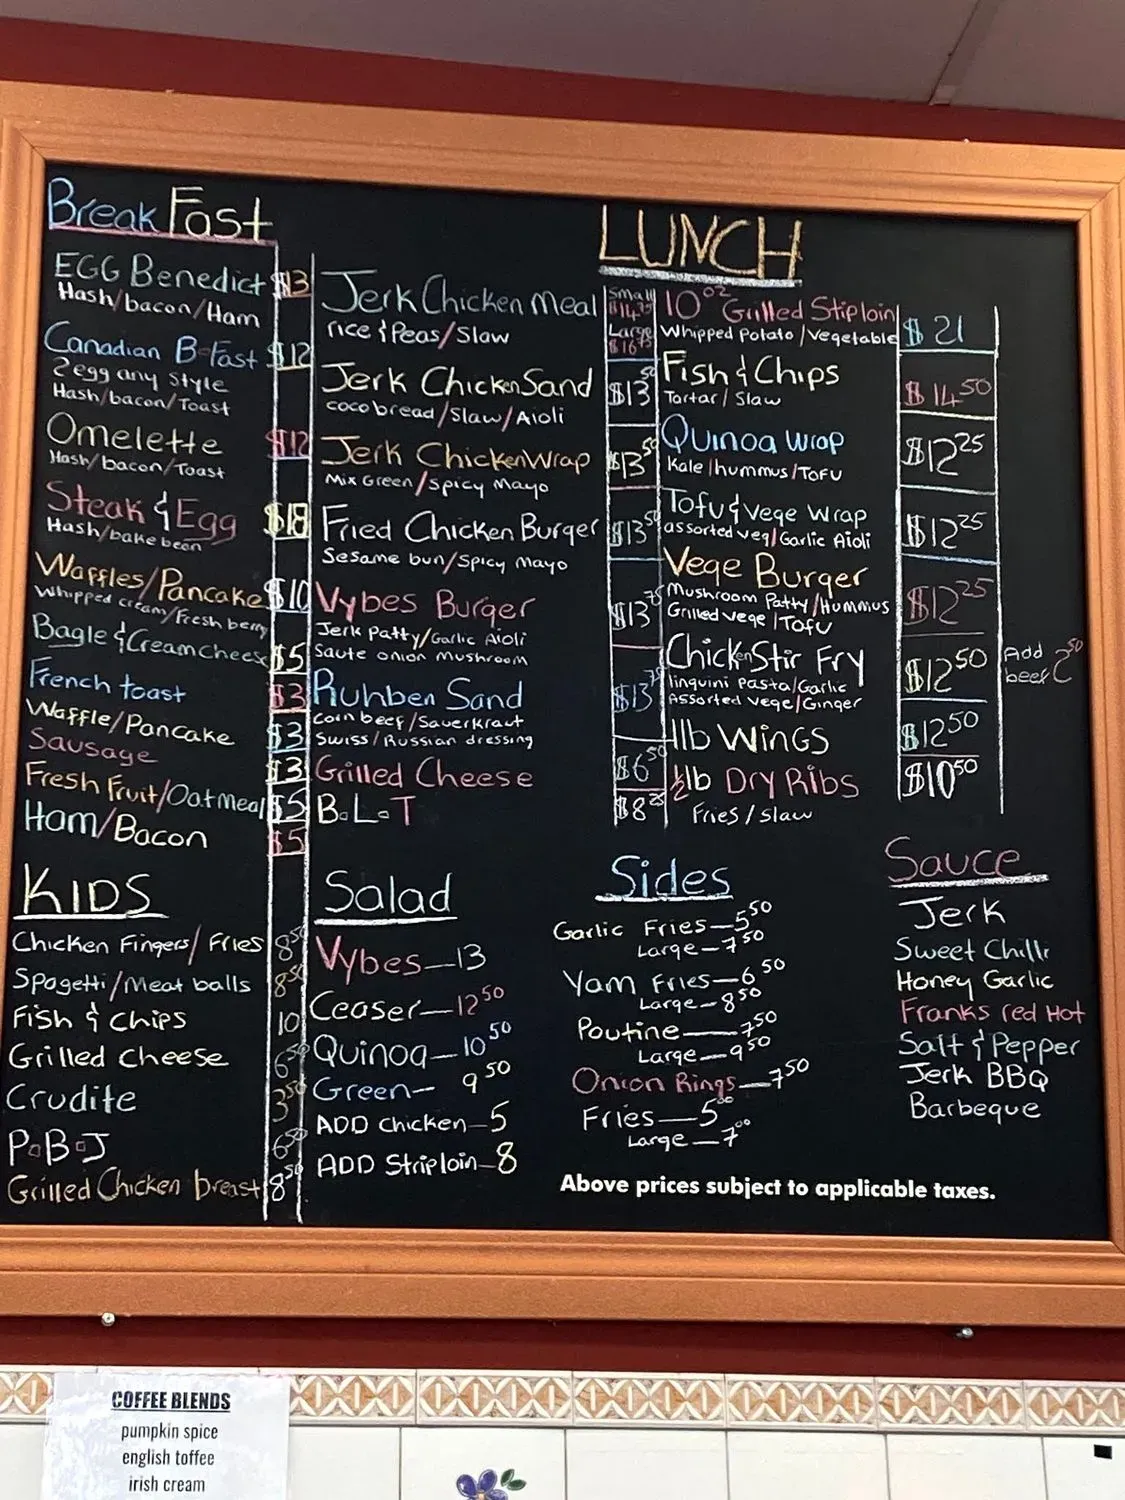 BreakFast
EGG Benedict $13
Hash/bacon/Ham
Canadian B-Fast $12
2 egg any style
Hash/bacon/Toast
Omelette $12
Hash/bacon/Toast
Steak & Egg $18
Hash/bake bean
Waffles/Pancake $10
Whipped cream/Fresh berry
Bagle & Cream cheese $5
French toast $3
Waffle/Pancake $3
Sausage $3
Fresh Fruit/Oatmeal $5
Ham/Bacon $5
LUNCH
Jerk Chicken Meal Small $14.75
rice & Peas/Slaw Large $16.75
Jerk Chicken Sand $13.50
coco bread/Slaw/Aioli
Jerk Chicken Wrap $13.50
Mix Green/Spicy Mayo
Fried Chicken Burger $13.50
Sesame bun/Spicy Mayo
Vybes Burger $13.75
Jerk Patty/Garlic Aioli
Saute onion Mushroom
Ruhben Sand $13.75
Corn beef/Sauerkraut
Swiss/Russian dressing
Grilled Cheese $6.50
B.L.T $8.25
10oz Grilled Stiploin $21
Whipped Potato/Vegetable
Fish & Chips $14.50
Tartar/Slaw
Quinoa Wrap $12.25
Kale/hummus/Tofu
Tofu & Vege Wrap $12.25
assorted veg/Garlic Aioli
Vege Burger $12.25
Mushroom Patty/Hummus
Grilled vege/Tofu
Chicken Stir Fry $12.50 Add beef 2.50
linguini Pasta/Garlic
Assorted Vege/Ginger
1lb Wings $12.50
½lb Dry Ribs $10.50
Fries/Slaw
KIDS
Chicken Fingers/Fries 8.50
Spagetti/Meat balls 8.50
Fish & Chips 10
Grilled Cheese 6.50
Crudite 3.50
P.B.J 6.50
Grilled Chicken breast 8.50
Salad
Vybes—13
Ceaser—12.50
Quinoa—10.50
Green—9.50
ADD Chicken—5
ADD Striploin—8
Sides
Garlic Fries—5.50
Large—7.50
Yam Fries—6.50
Large—8.50
Poutine—7.50
Large—9.50
Onion Rings—7.50
Fries—5.00
Large—7.00
Sauce
Jerk
Sweet Chilli
Honey Garlic
Franks red Hot
Salt & Pepper
Jerk BBQ
Barbeque
Above prices subject to applicable taxes.
COFFEE BLENDS
pumpkin spice
english toffee
irish cream